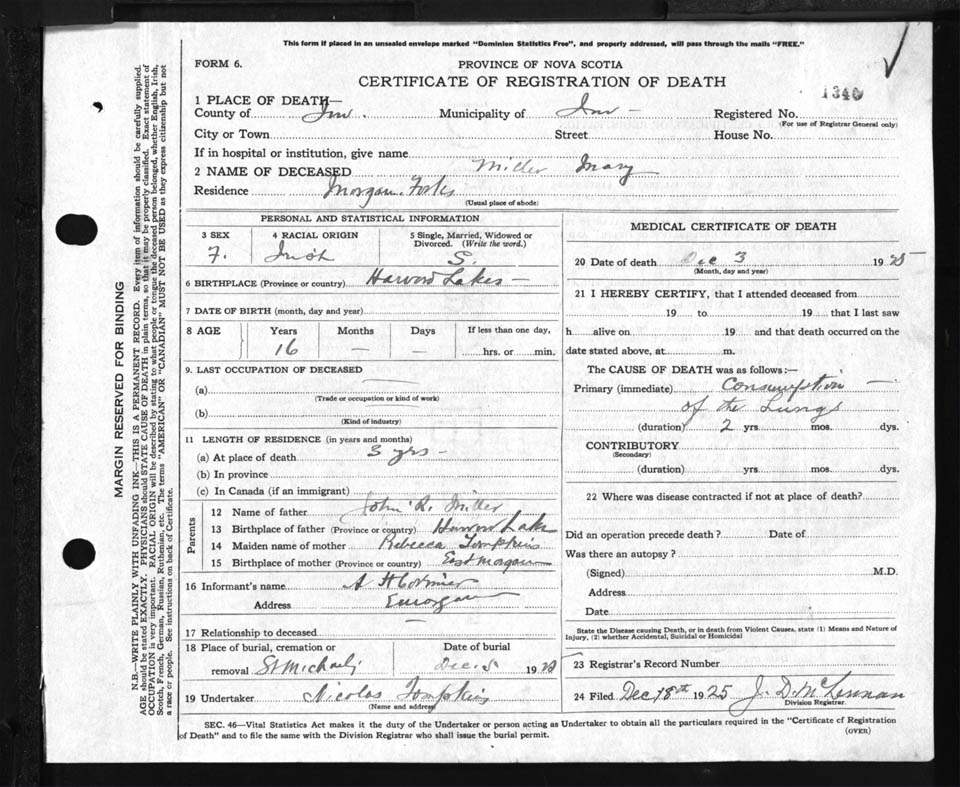 This form if placed in an unsealed envelope marked "Dominion Statistics Free", and properly addressed, will pass through the mails "FREE."
FORM 6.
PROVINCE OF NOVA SCOTIA
CERTIFICATE OF REGISTRATION OF DEATH
1340
1 PLACE OF DEATH—
County of Inv. Municipality of Inv — Registered No.
(For use of Registrar General only)
City or Town Street House No.
If in hospital or institution, give name
2 NAME OF DECEASED Miller Mary
Residence Morgan Forks
(Usual place of abode)
PERSONAL AND STATISTICAL INFORMATION
3 SEX 4 RACIAL ORIGIN 5 Single, Married, Widowed or Divorced. (Write the word.)
F. Irish S.
6 BIRTHPLACE (Province or country) Lakes —
7 DATE OF BIRTH (month, day and year)
8 AGE Years Months Days If less than one day,
16 — — hrs. or min.
9. LAST OCCUPATION OF DECEASED
(a)
(Trade or occupation or kind of work)
(b)
(Kind of industry)
11 LENGTH OF RESIDENCE (in years and months)
(a) At place of death 3 yrs —
(b) In province
(c) In Canada (if an immigrant)
Parents
12 Name of father John R. Miller
13 Birthplace of father (Province or country) Lake
14 Maiden name of mother Rebecca Tompkins
15 Birthplace of mother (Province or country) East Morgan
16 Informant's name A H Cormier
Address E Morgan
17 Relationship to deceased
18 Place of burial, cremation or Date of burial
removal St Michaels Dec. 5 1925
19 Undertaker Nicolas Tompkins
(Name and address)
MEDICAL CERTIFICATE OF DEATH
20 Date of death Dec 3 1925
(Month, day and year)
21 I HEREBY CERTIFY, that I attended deceased from
19 to 19 that I last saw
h alive on 19 and that death occurred on the
date stated above, at m.
The CAUSE OF DEATH was as follows:—
Primary (immediate) Consumption —
of the Lungs
(duration) 2 yrs. mos. dys.
CONTRIBUTORY
(Secondary)
(duration) yrs. mos. dys.
22 Where was disease contracted if not at place of death?
Did an operation precede death? Date of
Was there an autopsy?
(Signed) M.D.
Address
Date
State the Disease causing Death, or in death from Violent Causes, state (1) Means and Nature of
Injury, (2) whether Accidental, Suicidal or Homicidal
23 Registrar's Record Number
24 Filed Dec 18th 1925 J. D. McLennan
Division Registrar.
SEC. 46—Vital Statistics Act makes it the duty of the Undertaker or person acting as Undertaker to obtain all the particulars required in the "Certificate of Registration
of Death" and to file the same with the Division Registrar who shall issue the burial permit.
(OVER)
MARGIN RESERVED FOR BINDING
N.B.—WRITE PLAINLY WITH UNFADING INK—THIS IS A PERMANENT RECORD. Every item of information should be carefully supplied.
AGE should be stated EXACTLY. PHYSICIANS should STATE CAUSE OF DEATH in plain terms, so that it may be properly classified. Exact statement of
OCCUPATION is very important. RACIAL ORIGIN will be described by stating to what people or tongue the deceased person belonged, whether English, Irish,
Scotch, French, German, Russian, Ruthenian, etc. The terms "AMERICAN" OR "CANADIAN" MUST NOT BE USED as they express citizenship but not
a race or people. See instructions on back of Certificate.